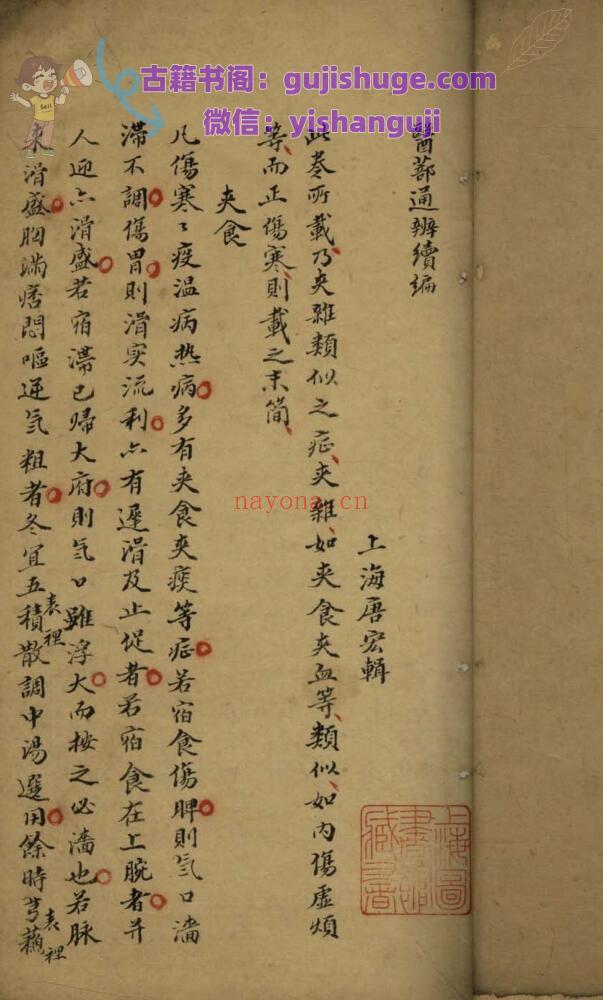 古籍书阁：gujishuge.com
微信：yishanguji
Sell
nayona.cn
醫鄰通辨續編
上海唐宏輯
此卷所載乃夾雜類似之症、夾雜、如夾食夾血等、類似、如內傷虛煩
等、而正傷寒、則載之末簡、
夾食
凡傷寒〻疫温病热病多有夾食夾痰等症若宿食傷脾則氣口濇
滞不調傷胃則滑实流利亦有遲滑及止促者若宿食在上腕者并
人迎亦滑盛若宿滯已歸大府則氣口雖浮大而按之必濇也若脉
來滑盛胸滿痞悶嘔逆氣粗者冬宜五積散表裡調中湯選用餘時芎蘓表裡
上海圖書館藏書